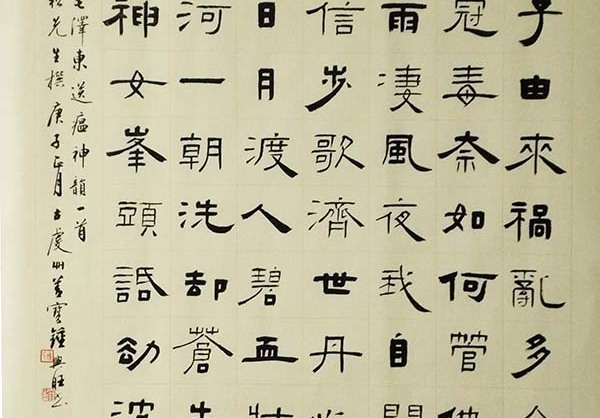 子由來禍亂多
冠毒奈如何管
雨淒風夜我自
信步歌濟世丹
日月渡人碧血
河一朝洗却蒼
神女峯頭話劫波
澤東送瘟神韻一首
先生撰庚子正月古處州